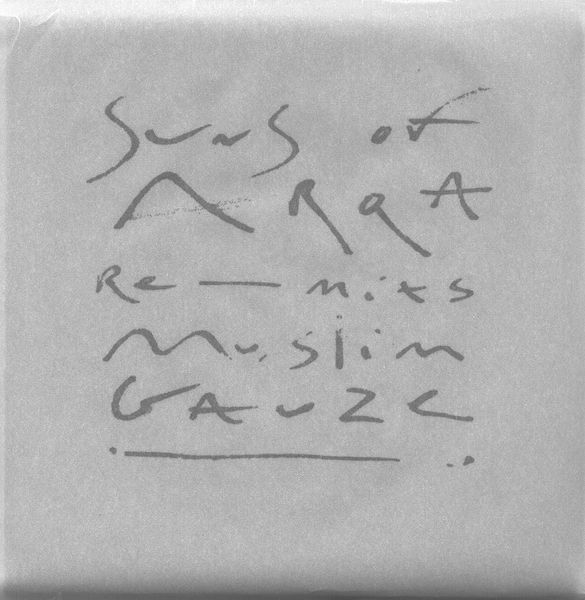 SunS of
ARqA
Re-mixs
Muslim
GAuZe